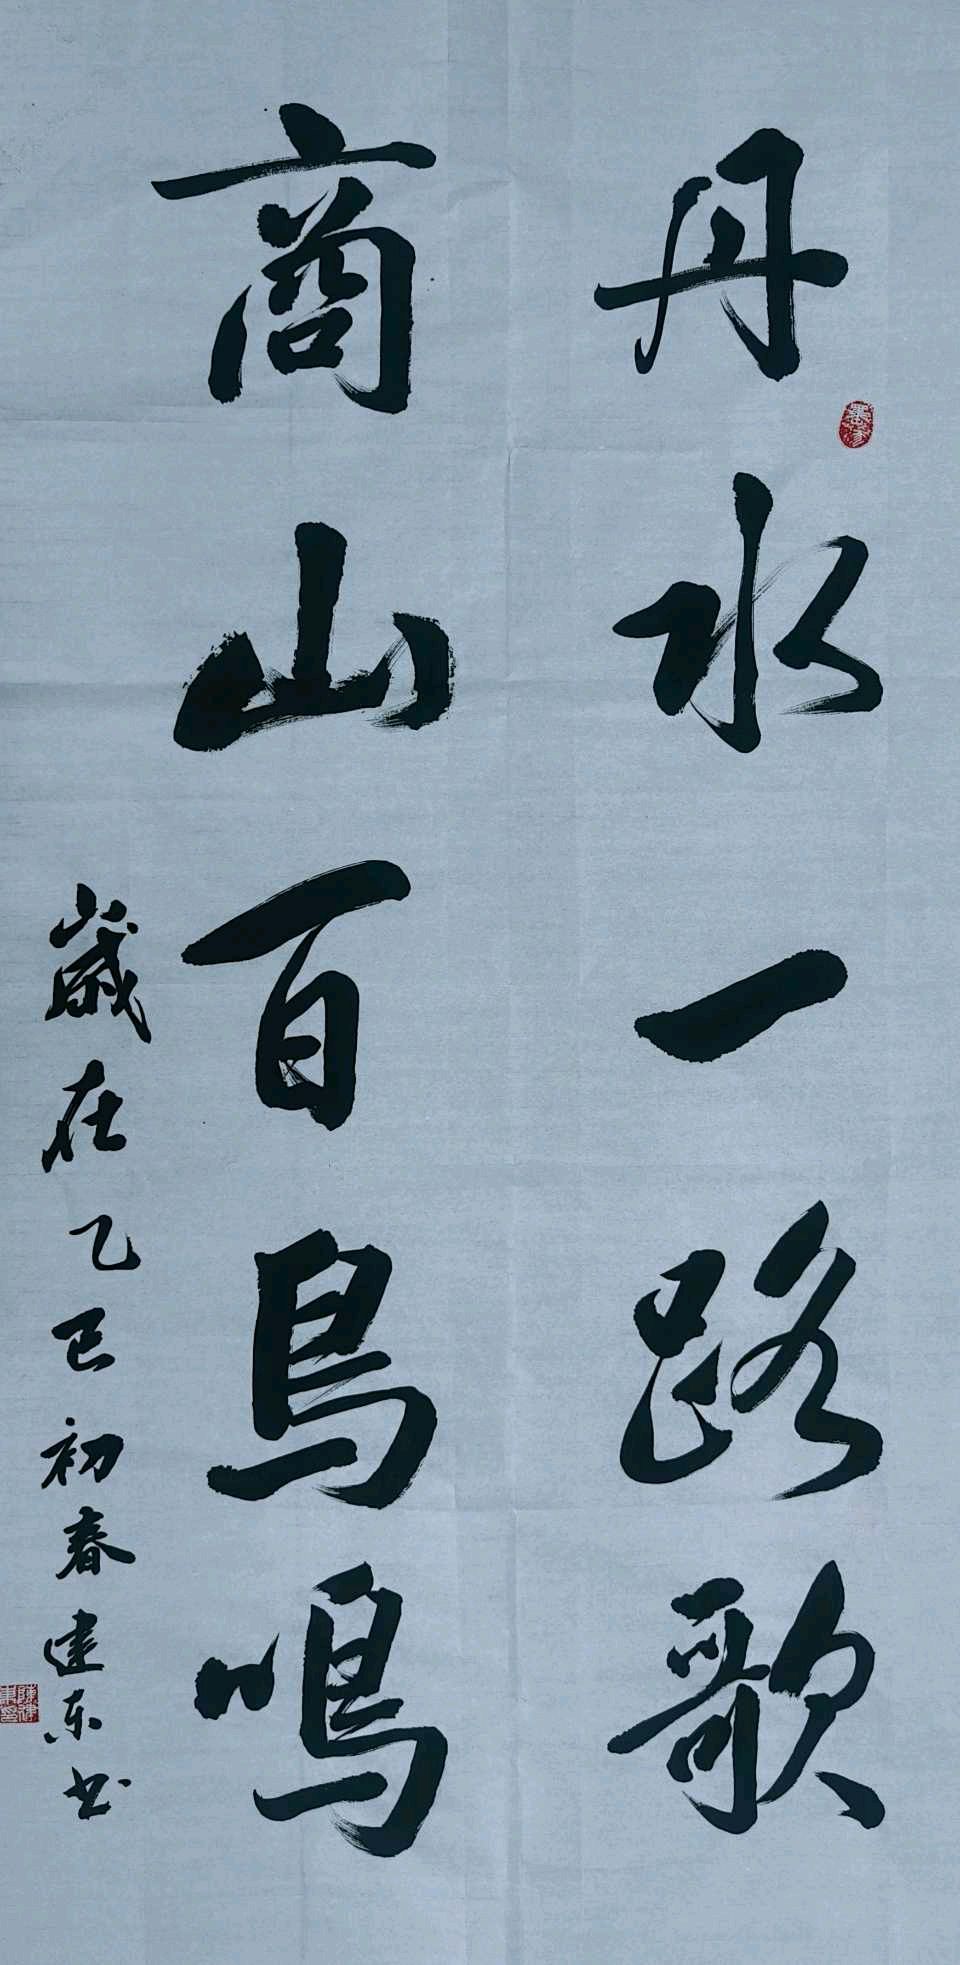 丹水一路歌
商山百鳥鳴
歲在乙巳初春建东书
陳建東印